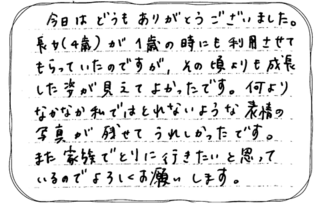 今日はどうもありがとうございました。
長女(4歳)が1歳の時にも利用させて
もらっていたのですが、その頃よりも成長
した姿が見えてよかったです。何より
なかなか私ではとれないような表情の
写真が残せてうれしかったです。
また家族でとりに行きたいと思って
いるのでよろしくお願いします。